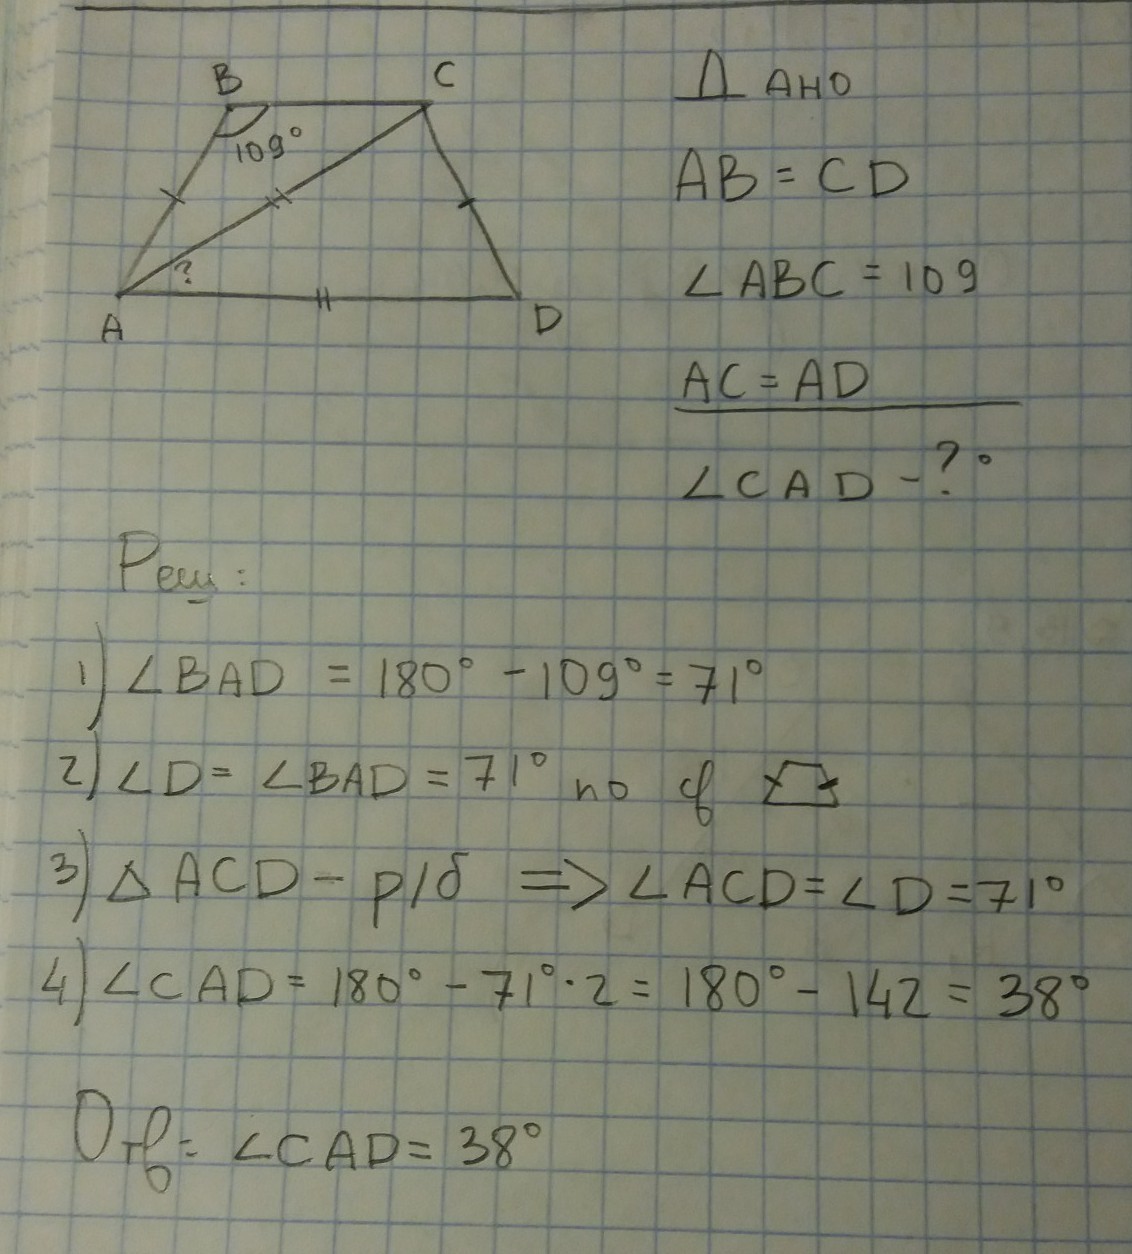 B C
109°
?
A D
Дано
AB = CD
∠ABC = 109
AC = AD
∠CAD - ?°
Реш:
1) ∠BAD = 180° - 109° = 71°
2) ∠D = ∠BAD = 71° по св
3) △ACD - р/б => ∠ACD = ∠D = 71°
4) ∠CAD = 180° - 71° · 2 = 180° - 142 = 38°
Отв: ∠CAD = 38°